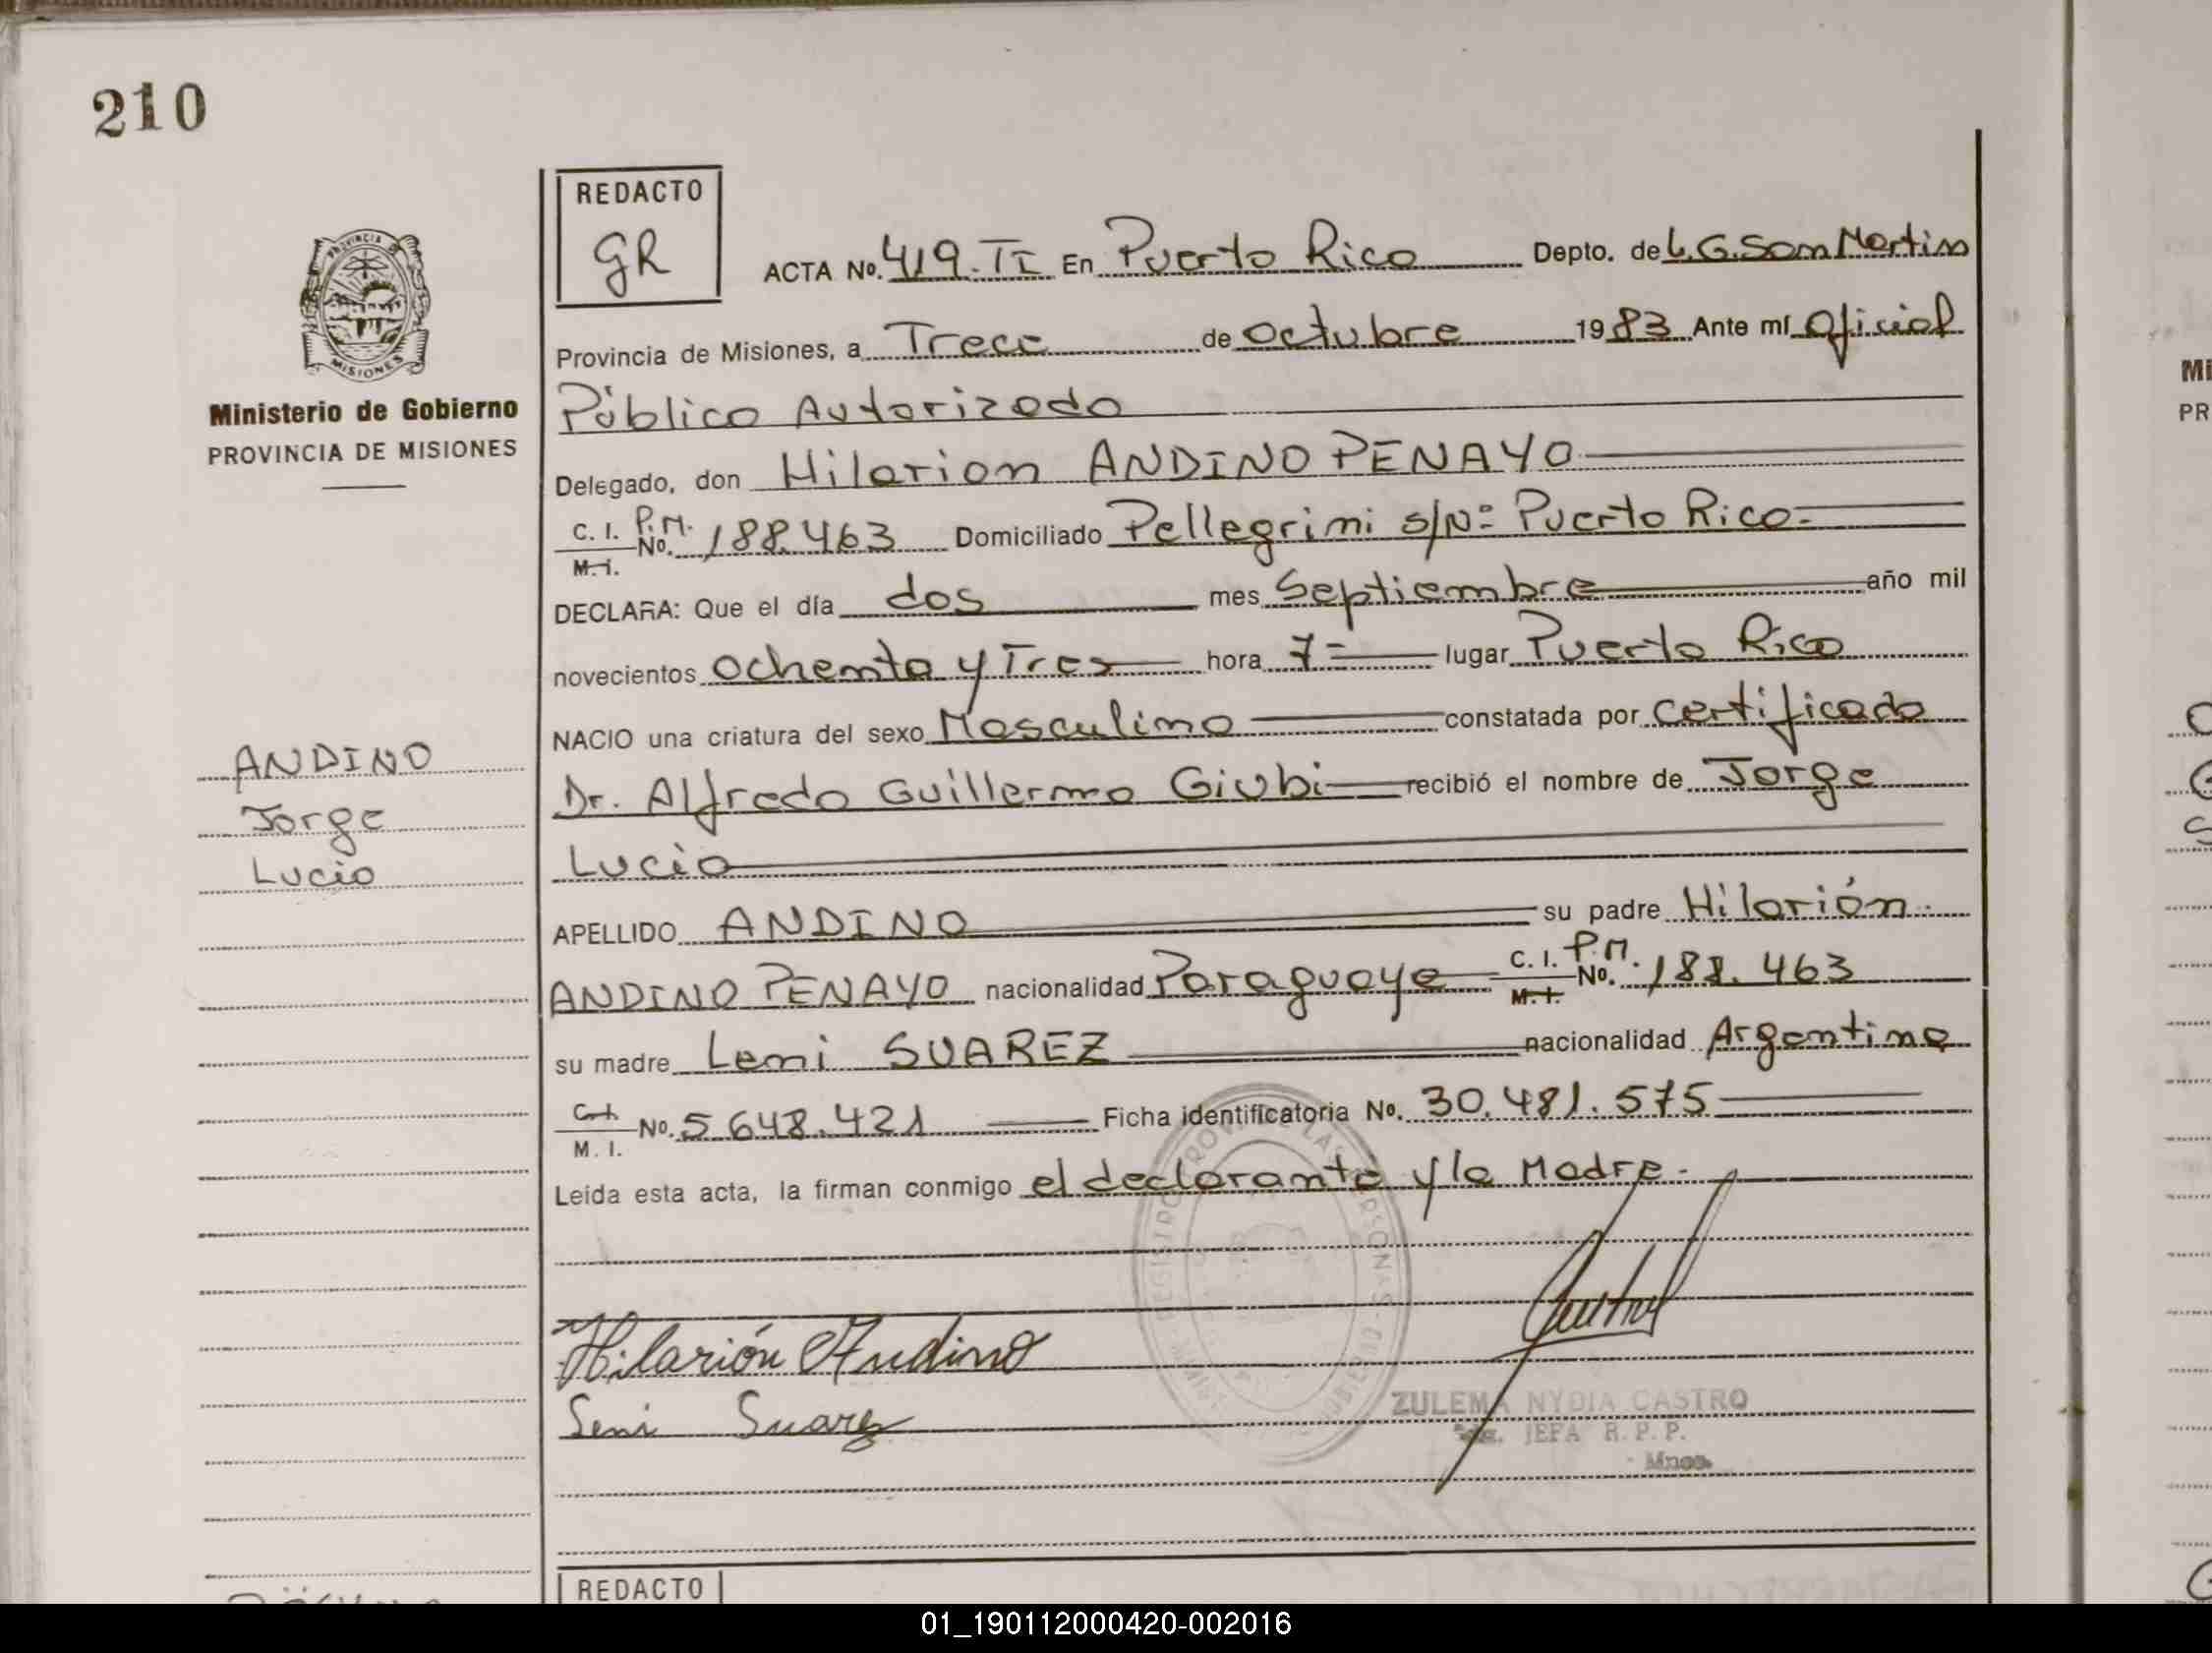 210
REDACTO
GR
PROVINCIA DE
MISIONES
ACTA No. 419. TI En Puerto Rico Depto. de L. G. San Martin
Provincia de Misiones, a Trece de Octubre 1983 Ante mí Oficial
Ministerio de Gobierno
PROVINCIA DE MISIONES
Público Autorizado
Delegado, don Hilarion ANDINO PENAYO
C. I. P.M.
M. I. No. 188.463 Domiciliado Pellegrimi s/Nº Puerto Rico.
DECLARA: Que el día dos mes Septiembre año mil
novecientos ochenta y Tres hora 7= lugar Puerto Rico
NACIO una criatura del sexo Masculino constatada por certificado
Dr. Alfredo Guillermo Giubi recibió el nombre de Jorge
Lucio
ANDINO
Jorge
Lucio
APELLIDO ANDINO su padre Hilarión
ANDINO PENAYO nacionalidad Paraguaya C. I. P.M. M. I. No. 188.463
su madre Leni SUAREZ nacionalidad Argentina
C. I. M. I. No. 5.648.421 Ficha identificatoria No. 30.481.575
Leida esta acta, la firman conmigo el declarante y la Madre.
Hilarión Andino
Leni Suarez
ZULEMA NYDIA CASTRO
JEFA R. P. P.
Mnes.
REDACTO
Mi
PR
01_190112000420-002016